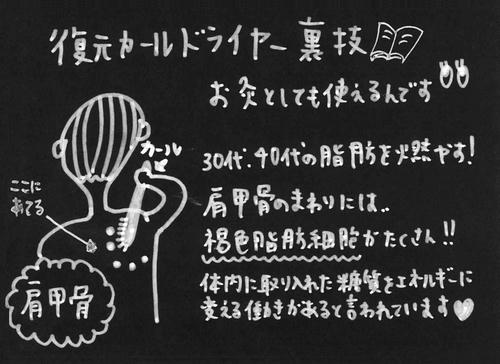 復元カールドライヤー裏技
お灸としても使えるんです
カール
ここに
あてる
肩甲骨
30代、40代の脂肪を燃やす!
肩甲骨のまわりには、、
褐色脂肪細胞がたくさん!!
体内に取り入れた糖質をエネルギーに
変える働きがあると言われています